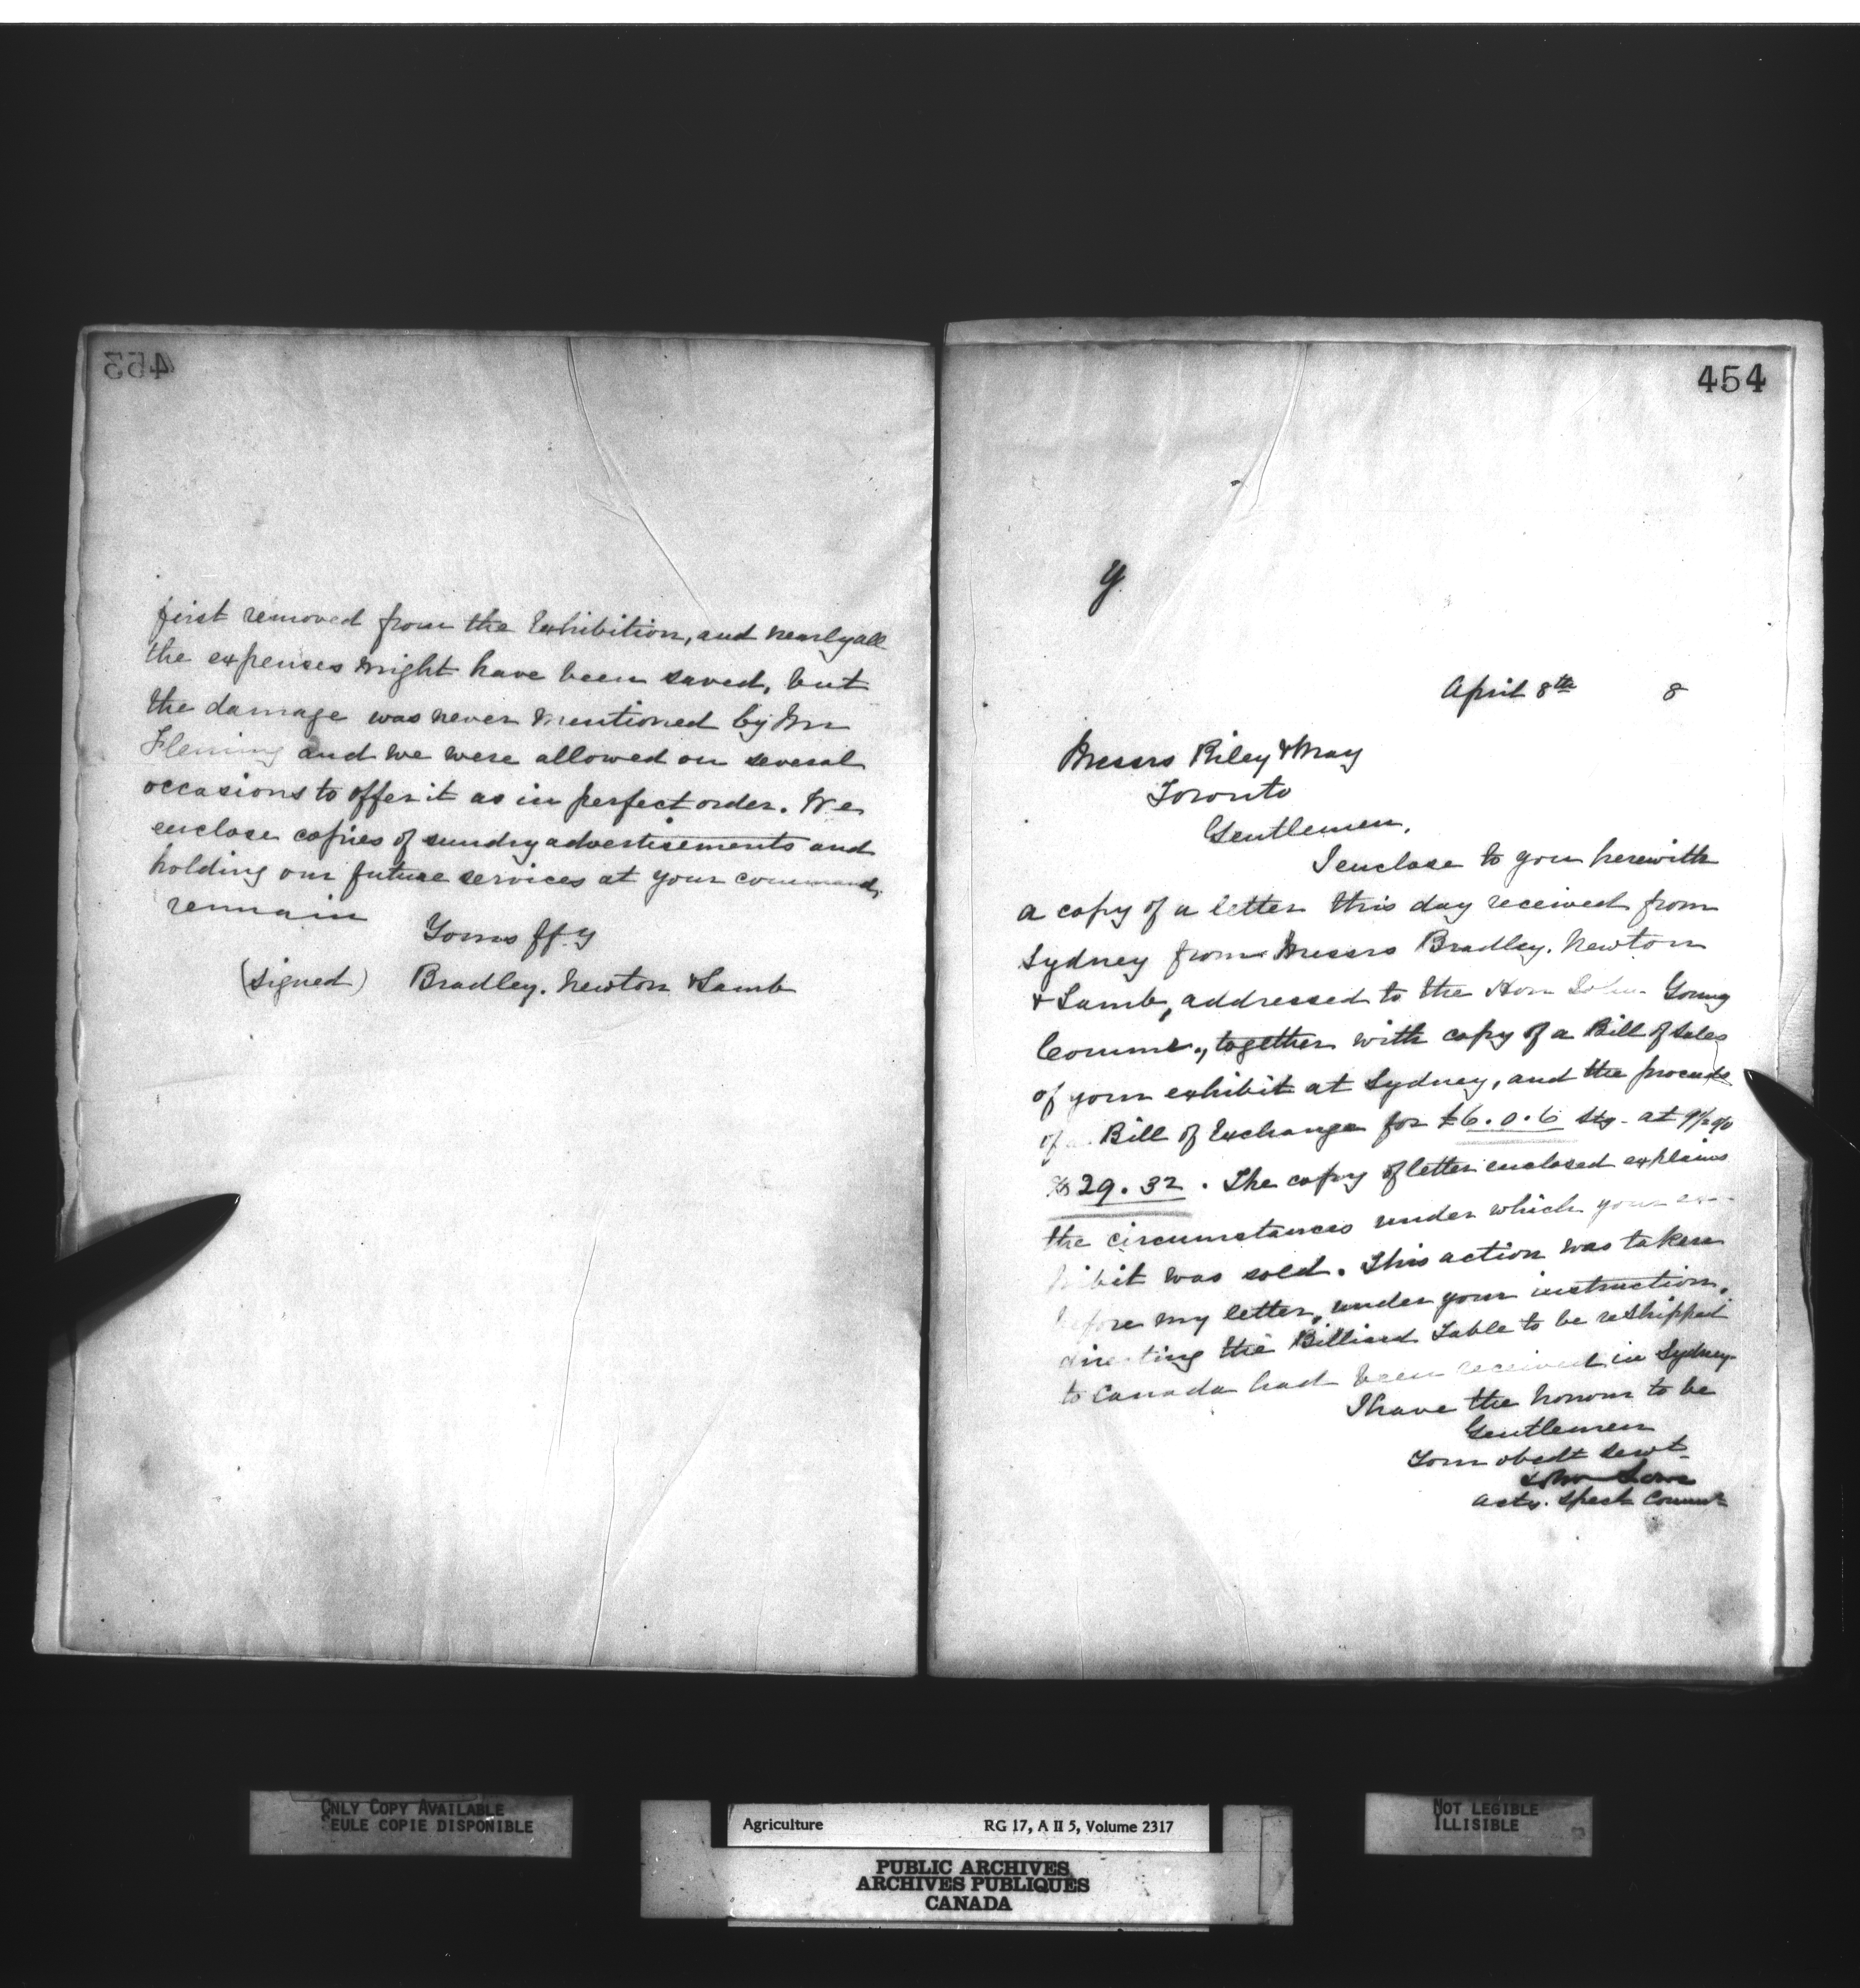 453
first removed from the Exhibition, and nearly all
the expenses might have been saved, but
the damage was never mentioned by Mr
Fleming and we were allowed on several
occasions to offer it as in perfect order. We
enclose copies of sundry advertisements and
holding our future services at your command,
remain
Yours ff.y
(signed) Bradley. Newton & Lamb
454
April 8th 8
Messrs Riley & May
Toronto
Gentlemen,
I enclose to you herewith
a copy of a letter this day received from
Sydney from Messrs Bradley. Newton
& Lamb, addressed to the Hon John Young
Commr., together with copy of a Bill of Sales
of your exhibit at Sydney, and the proceeds
of Bill of Exchange for £6.0.6 Stg. at 9½%
$29.32. The copy of letter enclosed explains
the circumstances under which your ex-
hibit was sold. This action was taken
before my letter, under your instruction,
directing the Billiard Table to be reshipped
to Canada had been received in Sydney
I have the honour to be
Gentlemen
Your obedt servt
acty. Spect Commr
ONLY COPY AVAILABLE
SEULE COPIE DISPONIBLE
Agriculture RG 17, A II 5, Volume 2317
PUBLIC ARCHIVES
ARCHIVES PUBLIQUES
CANADA
NOT LEGIBLE
ILLISIBLE